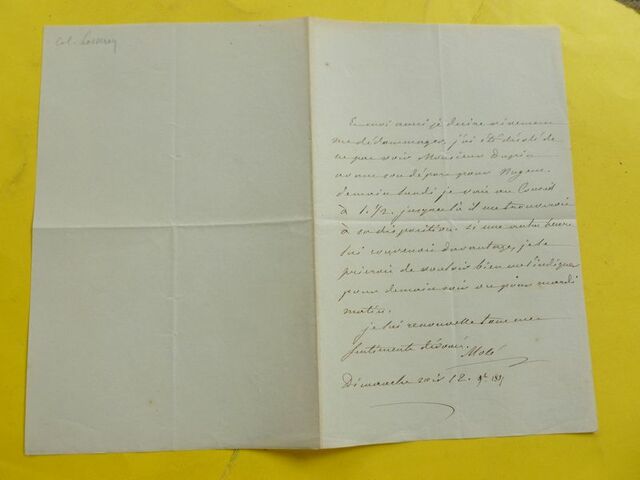 Et moi aussi je désire vivement
me dédommager, j'ai été désolé de
ne pas voir Monsieur Dupin
avant son départ pour
demain lundi je vais au Conseil
à 1. 1/2. jusques là il me trouverait
à sa disposition. si une autre heure
lui convenait davantage, je le
prierois de vouloir bien me l'indiquer
pour demain soir ou pour mardi
matin.
je lui renouvelle tous mes
sentiments dévoués.
Molé
Dimanche soir 12.